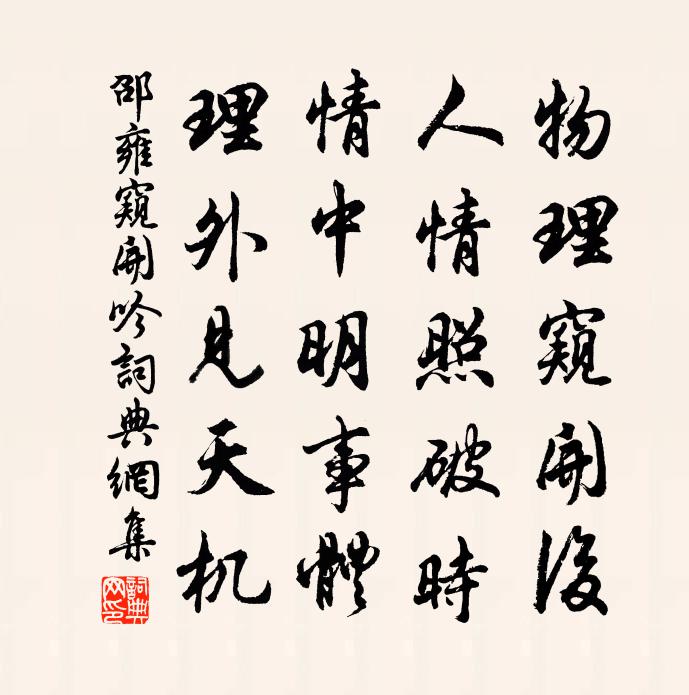 物理窺開後
人情照破時
情中明事體
理外見天机
邵雍窺開吟詞典網集
詞典網印